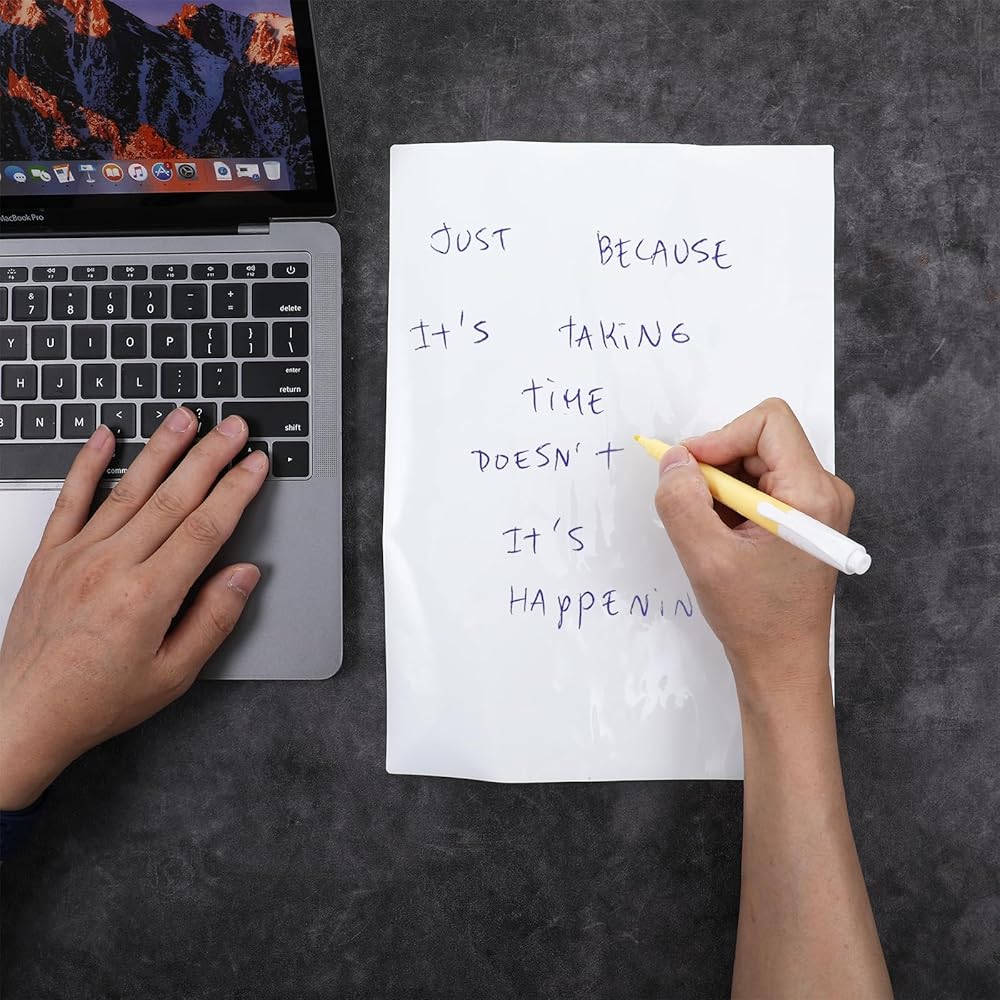 MacBook Pro
F6 F7 F8 F9 F10 F11 F12
& 7 * 8 ( 9 ) 0 - + = delete
Y U I O P { [ } ] | \
H J K L : ; " ' enter return
B N M < , > . ? shift
comm
JUST BECAUSE
It's tAKiNG
tiME
DOESN't
It's
HAppENiN